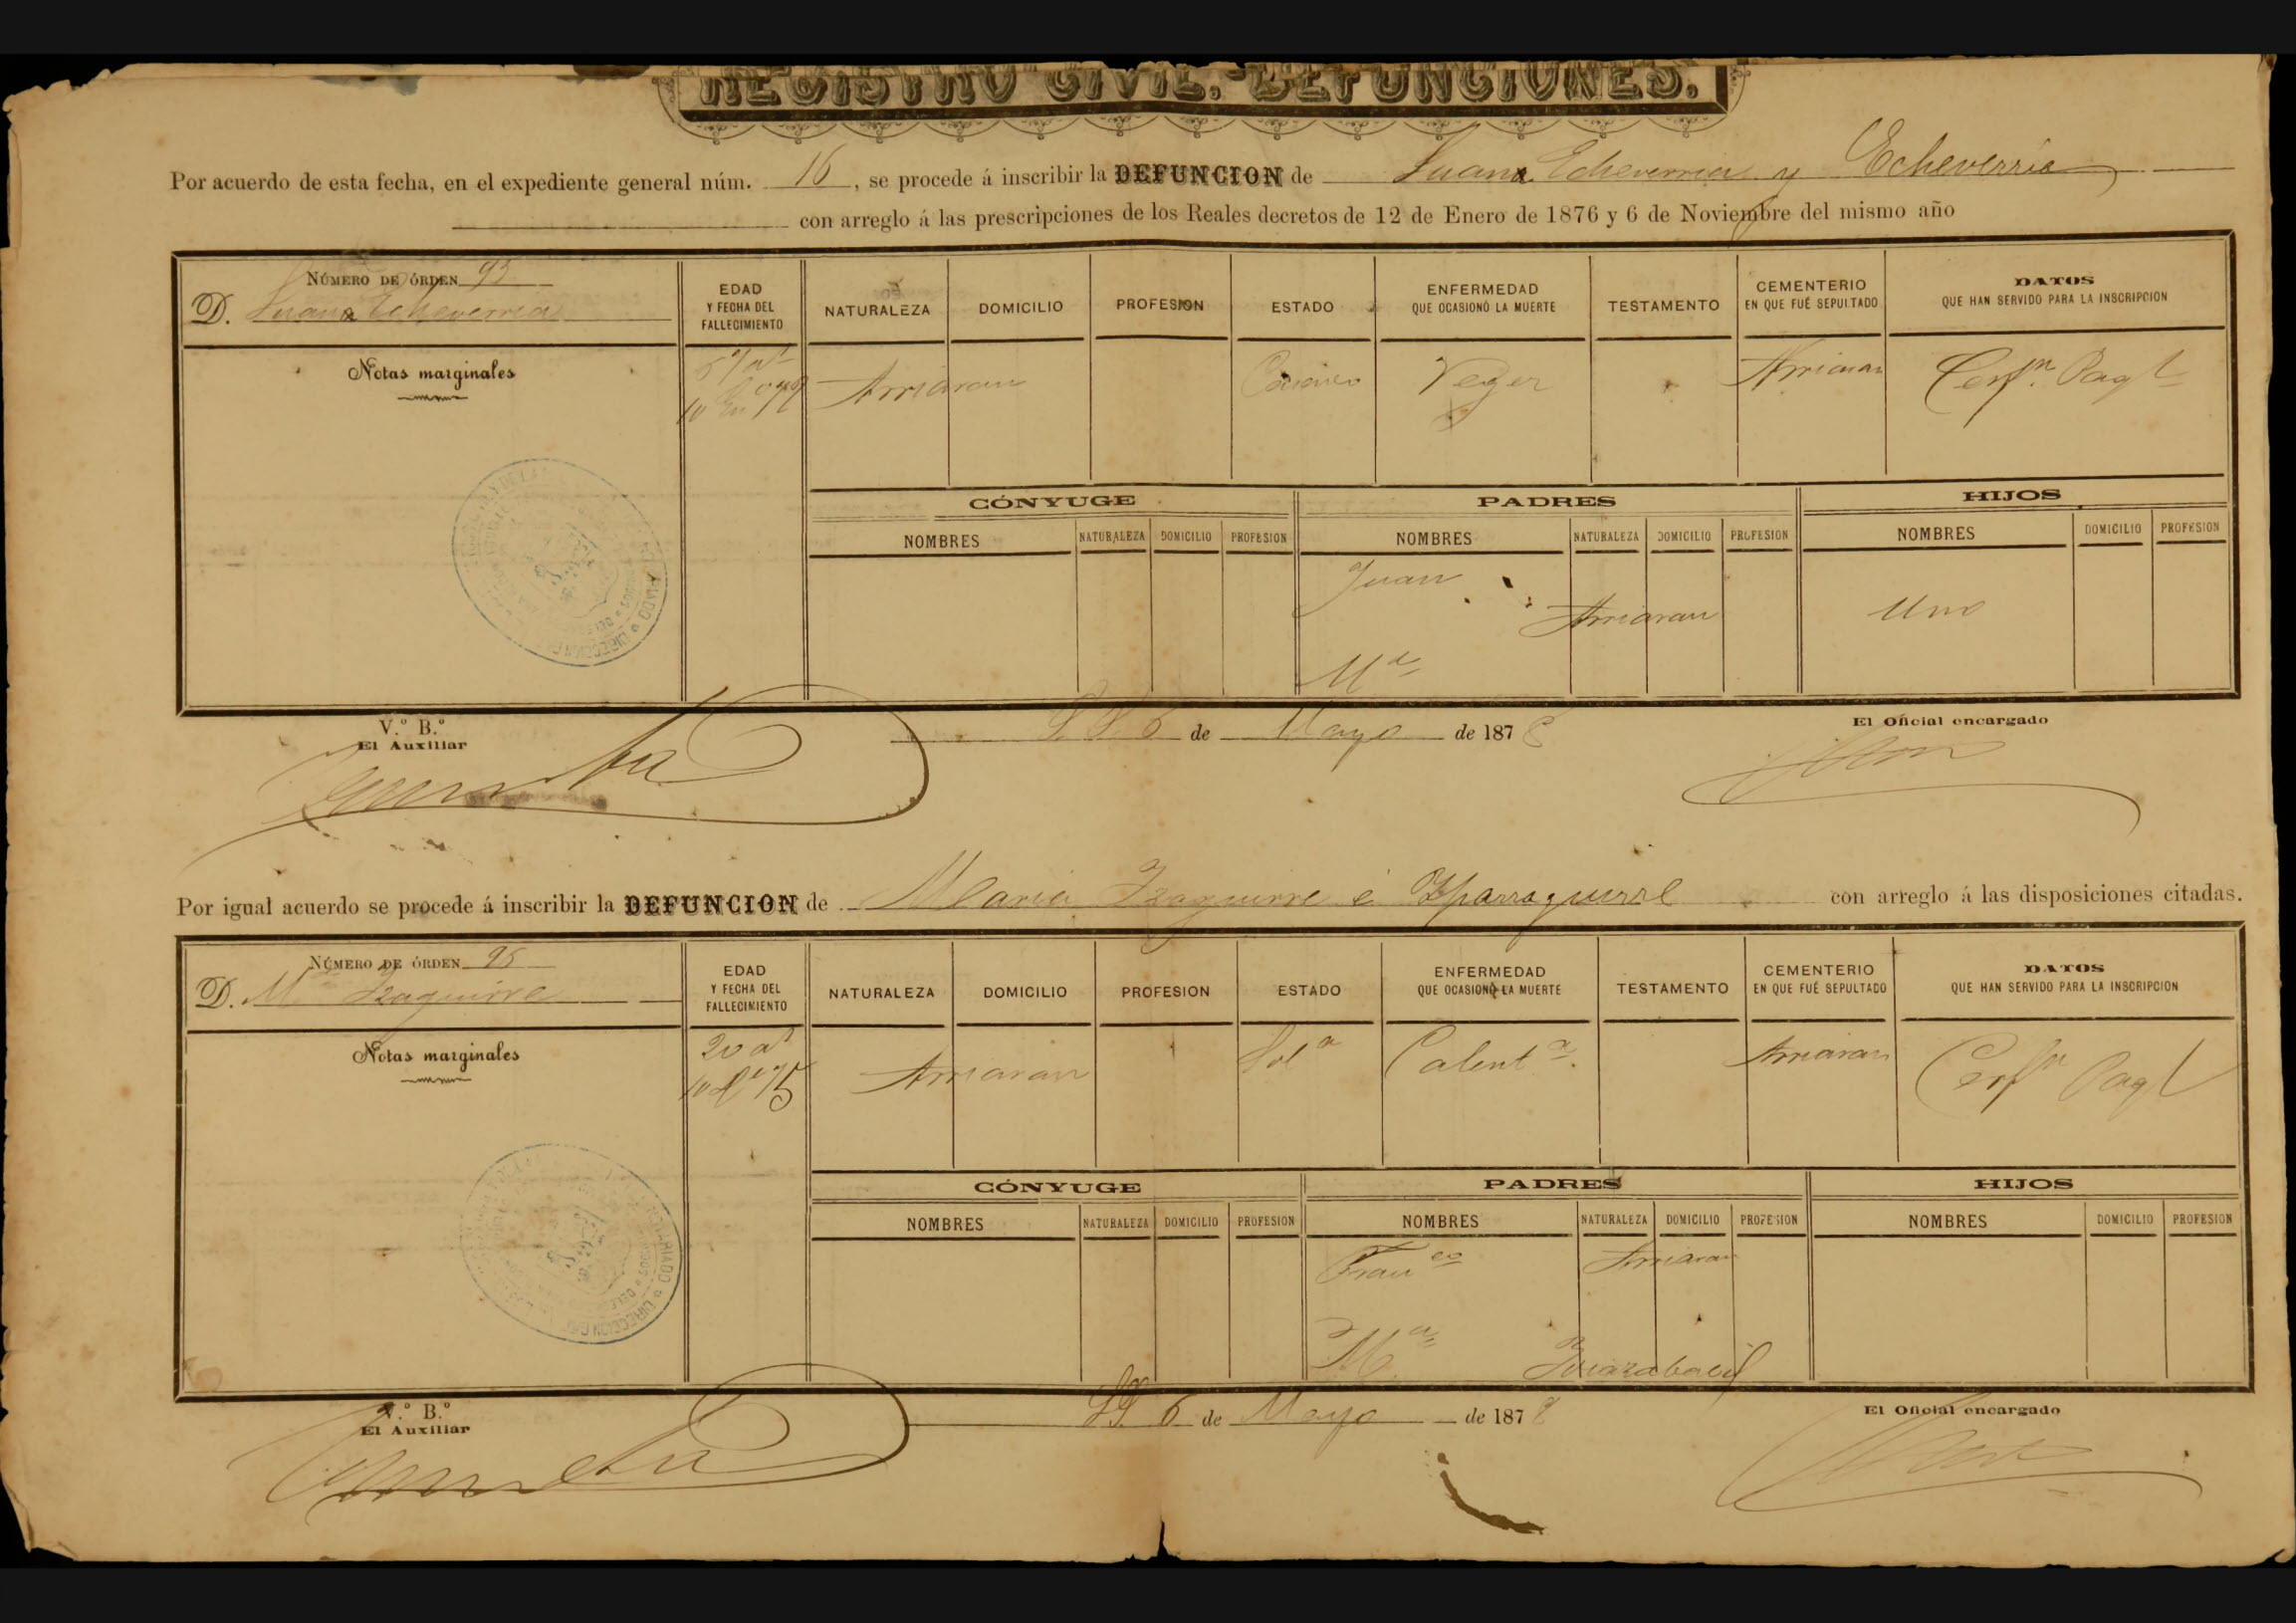 REGISTRO CIVIL.-DEFUNCIONES.
Por acuerdo de esta fecha, en el expediente general núm. 16, se procede á inscribir la DEFUNCION de Juana Echeverria y Echeverria
con arreglo á las prescripciones de los Reales decretos de 12 de Enero de 1876 y 6 de Noviembre del mismo año
NÚMERO DE ÓRDEN 95
D. Juana Echeverria
Notas marginales
EDAD
Y FECHA DEL
FALLECIMIENTO
NATURALEZA
DOMICILIO
PROFESION
ESTADO
ENFERMEDAD
QUE OCASIONÓ LA MUERTE
TESTAMENTO
CEMENTERIO
EN QUE FUÉ SEPULTADO
DATOS
QUE HAN SERVIDO PARA LA INSCRIPCION
Arriaran
Arriaran
CÓNYUGE
PADRES
HIJOS
NOMBRES
NATURALEZA
DOMICILIO
PROFESION
NOMBRES
NATURALEZA
DOMICILIO
PROFESION
NOMBRES
DOMICILIO
PROFESION
Juan
Arriaran
Uno
Mª
V.º B.º
El Auxiliar
S. S. 6 de Mayo de 1878
El Oficial encargado
Por igual acuerdo se procede á inscribir la DEFUNCION de Maria Izaguirre é Yparraguirre con arreglo á las disposiciones citadas.
NÚMERO DE ÓRDEN 96
D. Mª Izaguirre
Notas marginales
EDAD
Y FECHA DEL
FALLECIMIENTO
NATURALEZA
DOMICILIO
PROFESION
ESTADO
ENFERMEDAD
QUE OCASIONÓ LA MUERTE
TESTAMENTO
CEMENTERIO
EN QUE FUÉ SEPULTADO
DATOS
QUE HAN SERVIDO PARA LA INSCRIPCION
20 aˢ
Arriaran
Solª
Calentª.
Arriaran
CÓNYUGE
PADRES
HIJOS
NOMBRES
NATURALEZA
DOMICILIO
PROFESION
NOMBRES
NATURALEZA
DOMICILIO
PROFESION
NOMBRES
DOMICILIO
PROFESION
Francº
Arriaran
Mª
V.º B.º
El Auxiliar
S. S. 6 de Mayo de 1878
El Oficial encargado